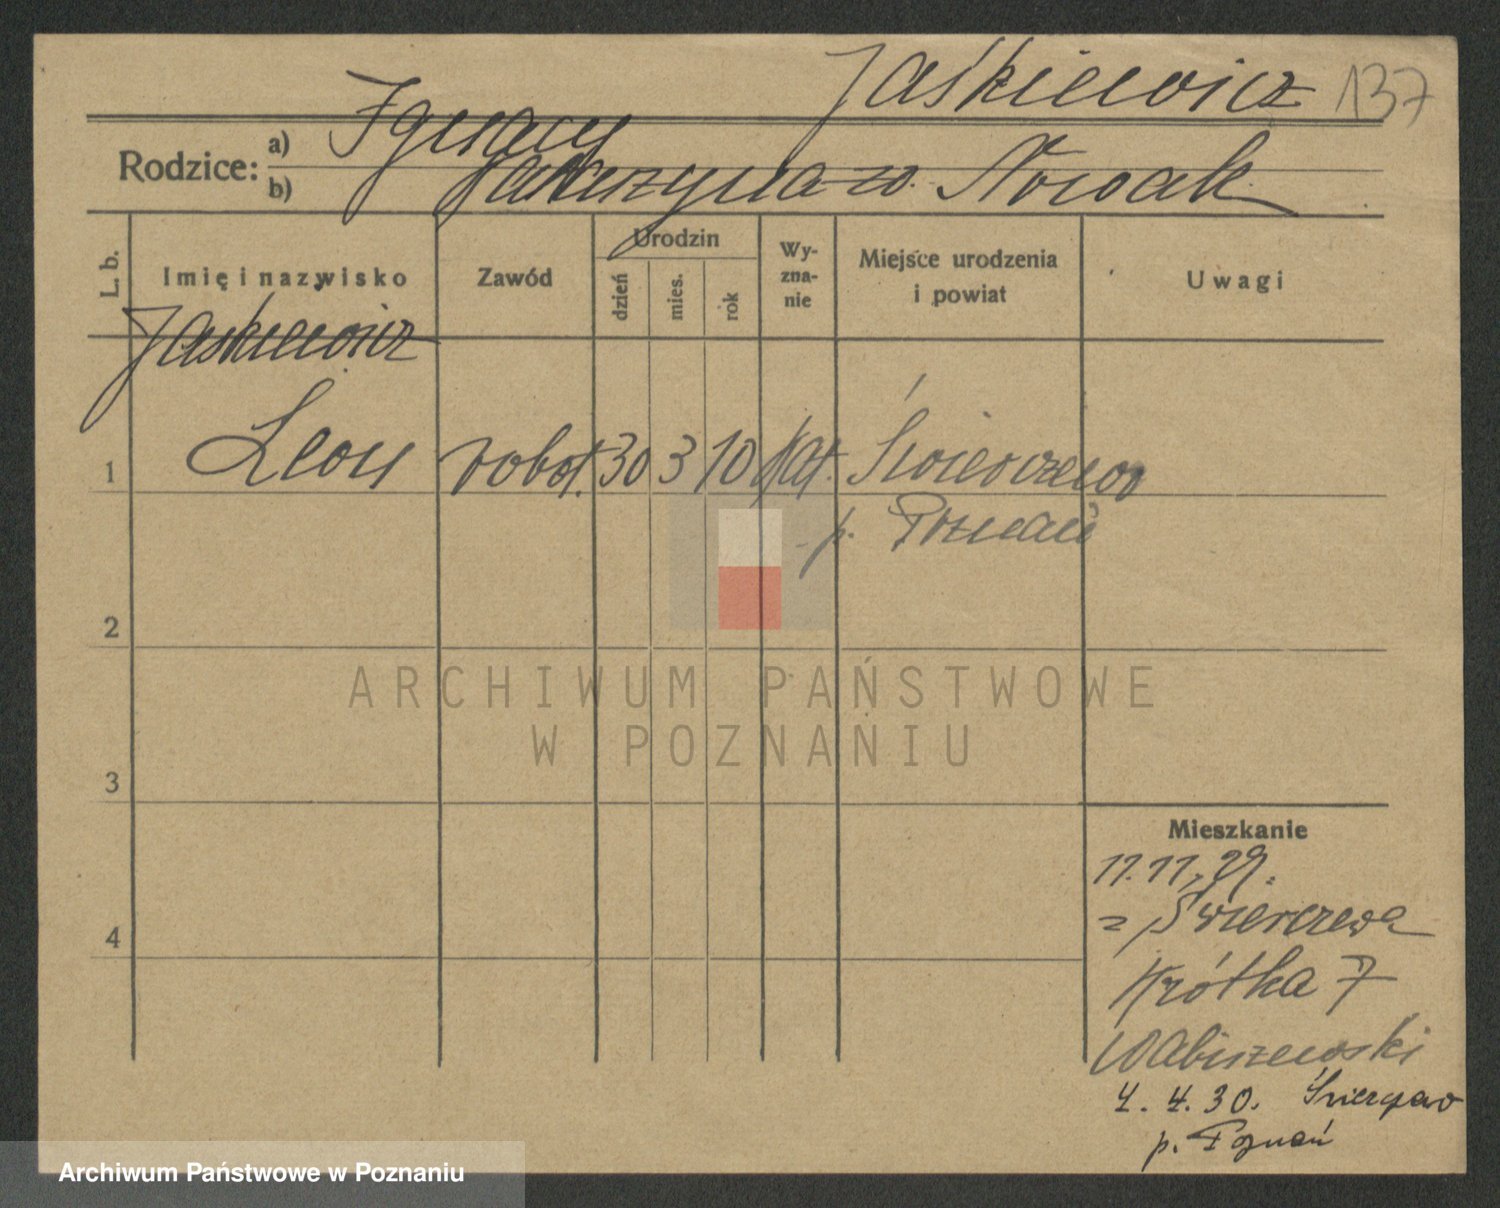 Jaśkiewicz 137
Rodzice: a) Ignacy
b) Katarzyna z d. Nowak
L. b. Imię i nazwisko Zawód Urodzin dzień mies. rok Wy-zna-nie Miejsce urodzenia i powiat Uwagi
Jaskiewicz
1 Leon robot. 30 3 10 kat. Świerczewo
p. Poznań
2
ARCHIWUM PAŃSTWOWE
W POZNANIU
3
Mieszkanie
11.11.29.
z Świerczewa
4
Krótka 7
Wabiszewski
4. 4. 30.
p. Poznań
Archiwum Państwowe w Poznaniu